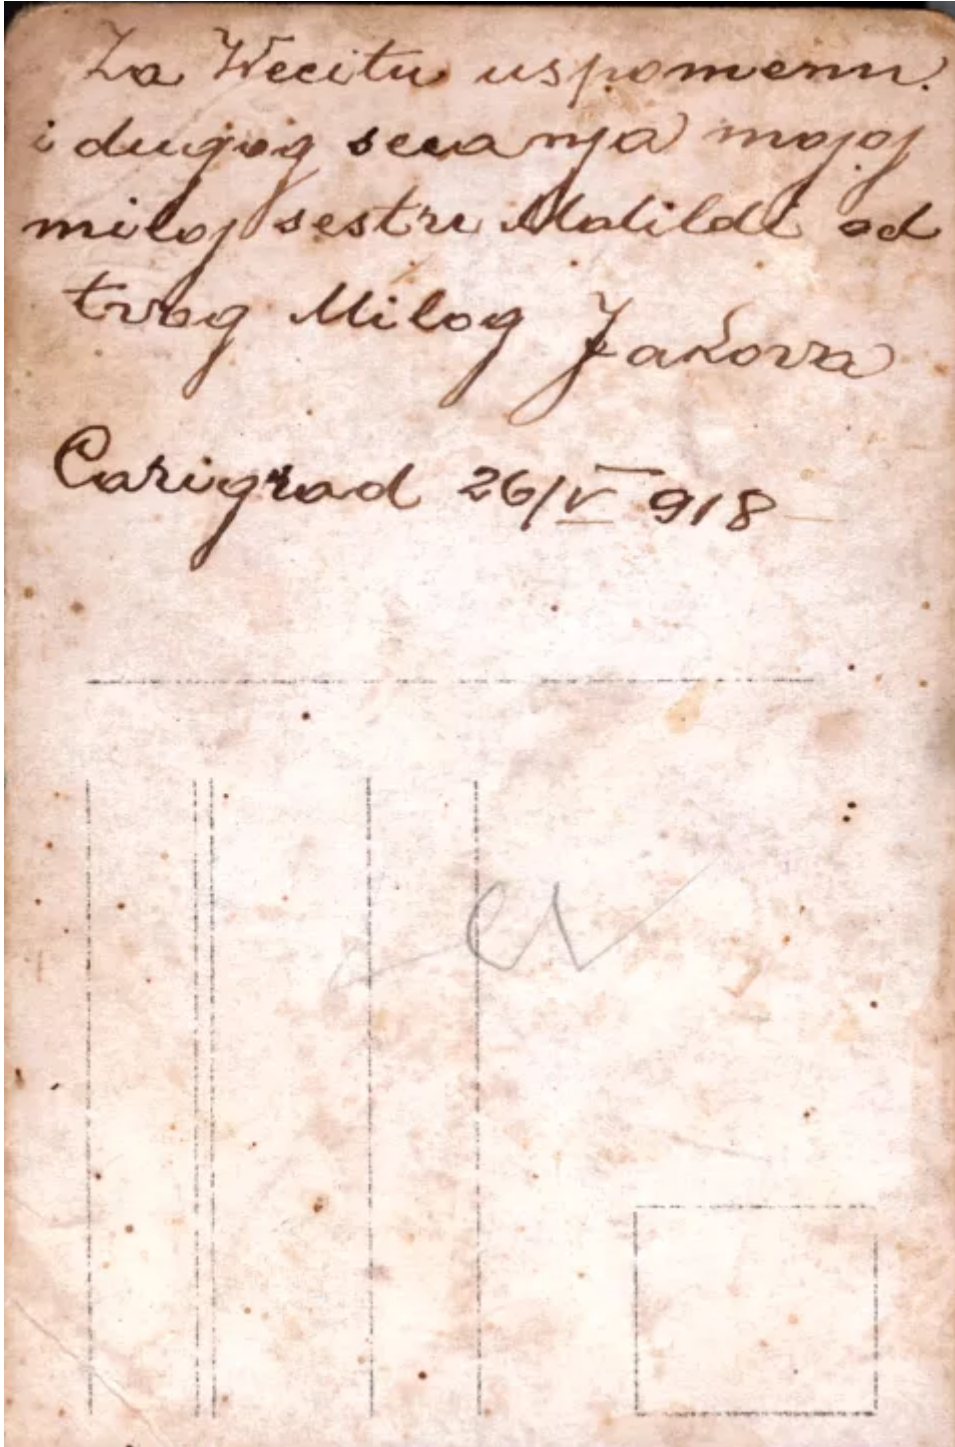 Za Wecitu uspomenu
i dugog secanja mojoj
miloj sestri Matildi od
tvog Milog Jakova
Carigrad 26/V 918